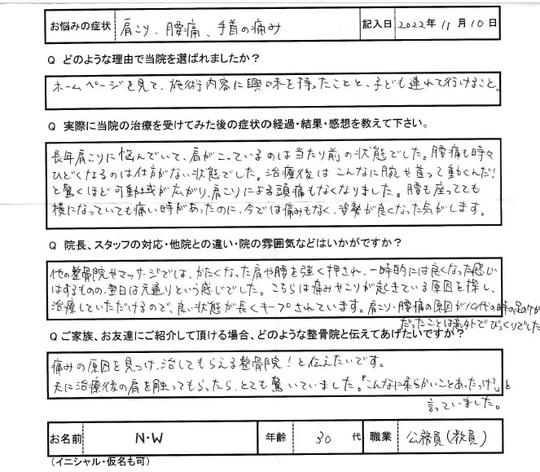 お悩みの症状 肩こり、腰痛、手首の痛み 記入日 2022年 11月 10日
Q どのような理由で当院を選ばれましたか?
ホームページを見て、施術内容に興味を持ったことと、子ども連れで行けること。
Q 実際に当院の治療を受けてみた後の症状の経過・結果・感想を教えて下さい。
長年肩こりに悩んでいて、肩がこっているのは当たり前の状態でした。腰痛も時々
ひどくなるのは仕方がない状態でした。治療後はこんなに腕や首って動くんだ!
と驚くほど可動域が広がり、肩こりによる頭痛もなくなりました。腰も座ってても
横になっていても痛い時があったのに、今では痛みもなく、姿勢が良くなった気がします。
Q 院長、スタッフの対応・他院との違い・院の雰囲気などはいかがですか?
他の整骨院やマッサージでは、かたくなった肩や腰を強く押され、一時的には良くなった感じ
はするものの、翌日は元通りという感じでした。こちらは痛みやこりが起きている原因を探し、
治療していただけるので、良い状態が長くキープされています。肩こり・腰痛の原因が10代の時の
だったことは意外でびっくりでした
Q ご家族、お友達にご紹介して頂ける場合、どのような整骨院と伝えてあげたいですか?
痛みの原因を見つけ、治してもらえる整骨院!と伝えたいです。
夫に治療後の肩を触ってもらったら、とても驚いていました。「こんなに柔らかいことあったっけ?」と
言っていました。
お名前 N・W 年齢 30代 職業 公務員(教員)
(イニシャル・仮名も可)